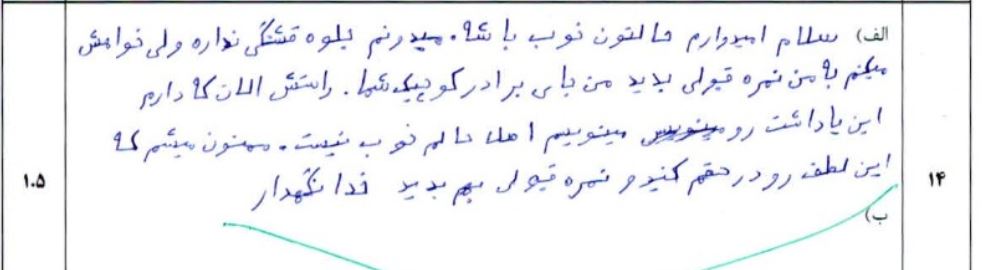 الف) سلام امیدوارم حالتون خوب باشه. میدونم جلوه قشنگی نداره ولی خواهش
میکنم به من نمره قبولی بدید من جای برادر کوچیک شما. راستش الان که دارم
این یاداشت رو مینویسم اصلا حالم خوب نیست. ممنون میشم که
این لطف رو در حقم کنید و نمره قبولی بهم بدید خدانگهدار
ب)
۱۴
۱.۵